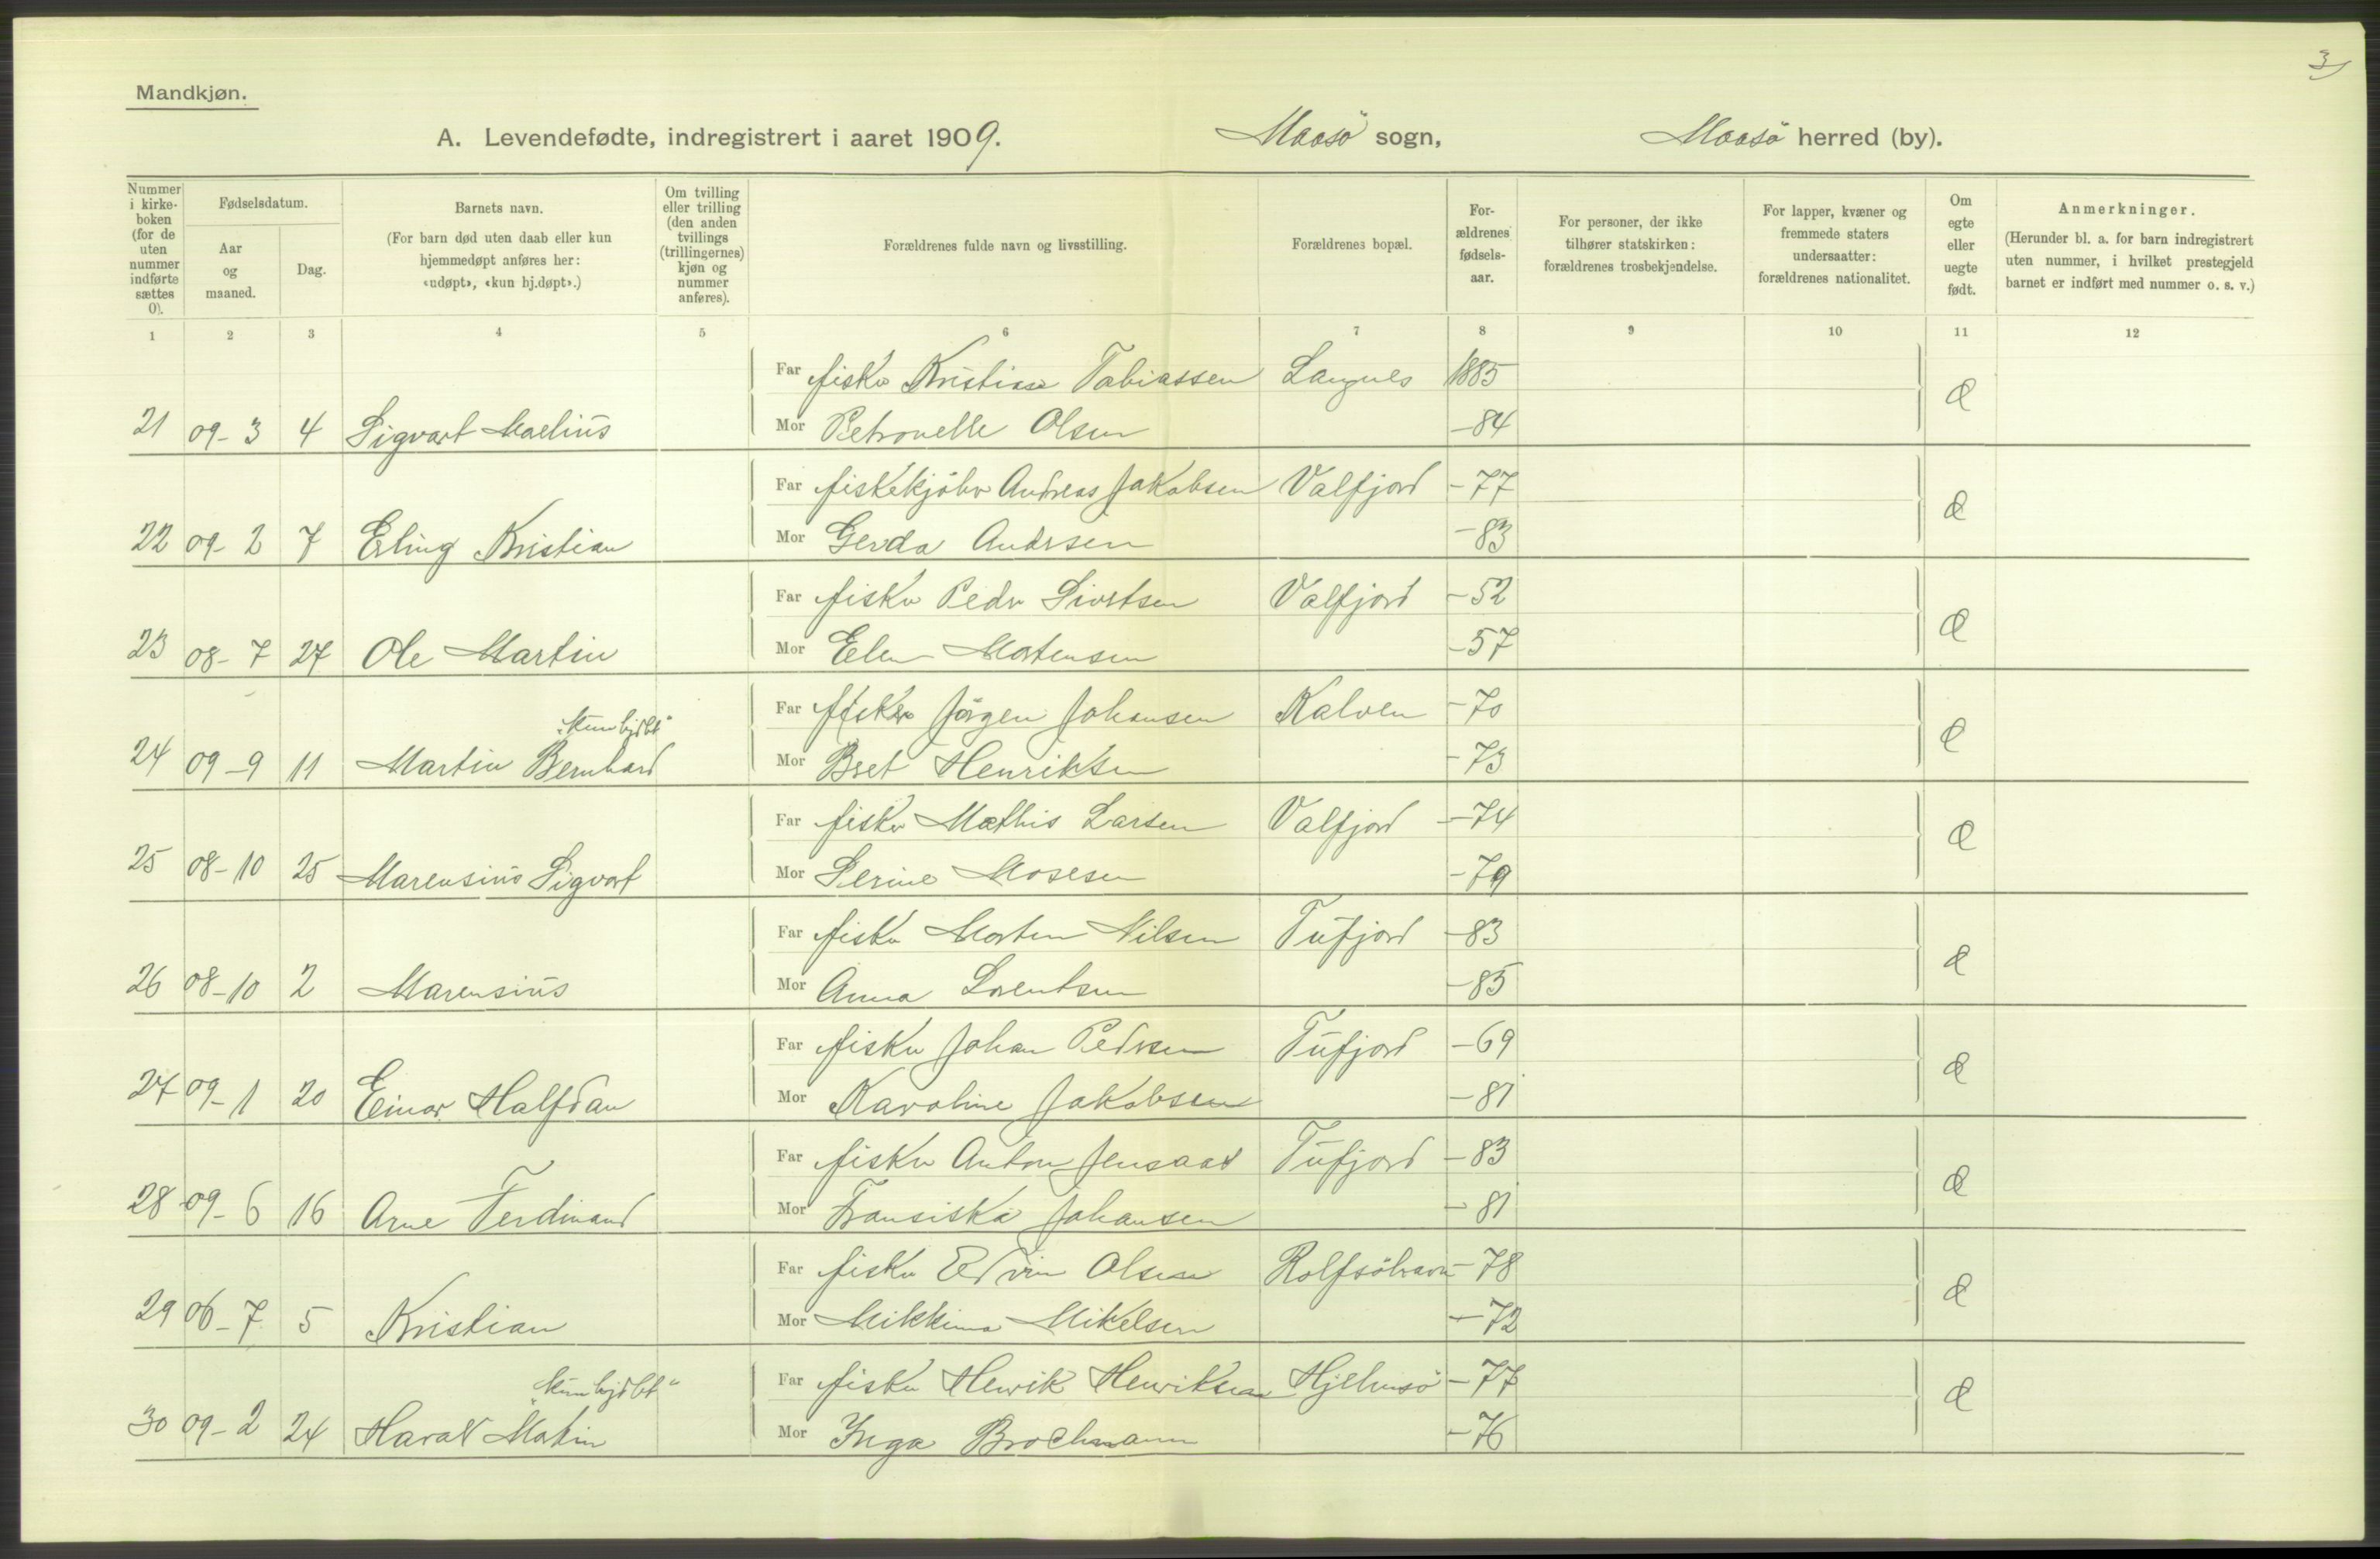 3
Mandkjøn.
A. Levendefødte, indregistrert i aaret 1909. Maasö sogn, Maasö herred (by).
Nummer i kirkeboken (for de uten nummer indførte sættes 0). Fødselsdatum. Aar og maaned. Dag. Barnets navn. (For barn død uten daab eller kun hjemmedøpt anføres her: «udøpt», «kun hj.døpt».) Om tvilling eller trilling (den anden tvillings (trillingernes) kjøn og nummer anføres). Forældrenes fulde navn og livsstilling. Forældrenes bopæl. Forældrenes fødselsaar. For personer, der ikke tilhører statskirken: forældrenes trosbekjendelse. For lapper, kvæner og fremmede staters undersaatter: forældrenes nationalitet. Om egte eller uegte født. Anmerkninger. (Herunder bl. a. for barn indregistrert uten nummer, i hvilket prestegjeld barnet er indført med nummer o. s. v.)
1 2 3 4 5 6 7 8 9 10 11 12
Far fisker Kristian Tobiassen Langnes 1885
21 09-3 4 Sigvart Maelius Mor Petronelle Olsen -84 Æ
Far fiskekjöber Andreas Jakobsen Valfjord -77
22 09-2 7 Erling Kristian Mor Gerda Andrsen -83 Æ
Far fisker Peder Sivertsen Valfjord -52
23 08-7 27 Ole Martin Mor Elen Mortensen -57 Æ
Far fisker Jörgen Johansen Kalven -70
"kun hjdbt"
24 09-9 11 Martin Bernhard Mor Bret Henriksen -73 Æ
Far fisker Mathis Larsen Valfjord -74
25 08-10 25 Marensius Sigvart Mor Serine Mosesen -79 Æ
Far fisker Morten Nilsen Tufjord -83
26 08-10 2 Marensius Mor Anna Lorentsen -85 Æ
Far fisker Johan Pedersen Tufjord -69
27 09-1 20 Einar Halfdan Mor Karoline Jakobsen -81 Æ
Far fisker Anton Jensaas Tufjord -83
28 09-6 16 Arne Ferdinand Mor Fransiska Johansen -81 Æ
Far fisker Edvin Olsen Rolfsöhavn -78
29 06-7 5 Kristian Mor Mikkima Mikelsen -72 Æ
Far fisker Henrik Henriksen Hjelmsö -77
"kun hjdbt"
30 09-2 24 Harald Martin Mor Inga Brochmann -76 Æ